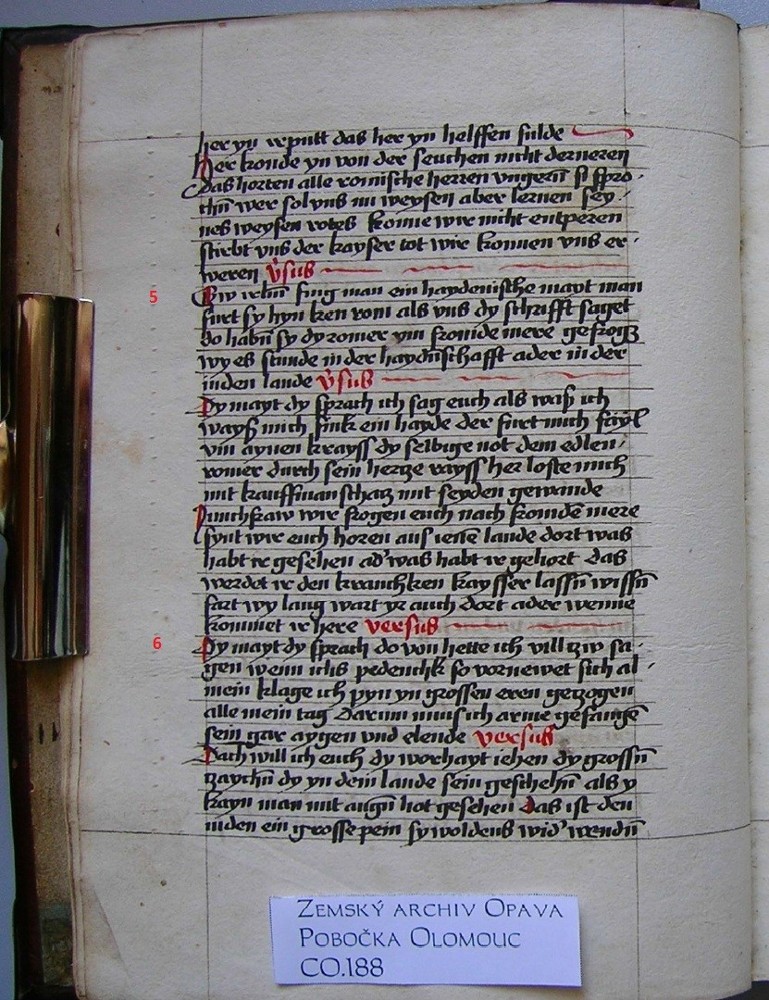 her yn erputt das her yn helffen sulde
Her konde yn von der seuchen nicht derneren
Das horten alle romische herren vngern̄ si spro-
chn̄ wer sol vns nu weysen aber lernen sey-
nes weysen rotes konne wir nicht entperen
stirbt vns der kayser tot wir konnen vns er-
weren v̉sus
5
Czw fing man ein haydenische mayt man
furt sy hyn ken rom als vns dy schrifft saget
do habn̄ sy dy romer vm fromde mere gefrogt
wy es stunde in der haydn̄schafft ader in der
iuden lande v̉sus
Dy mayt dy sprach ich sag euch als waß ich
wayß mich fink ein hayde der furt mich
vm aynen krayss dy selbige not dem edlen
romer durch sein hercze rayss her loste mich
mit kauffmanschacz mit seyden gewande
Iunchfraw wir frogen euch nach fromdē mere
synt wir euch horen aus ienē lande dort was
habt ir gesehen ad' was habt ir gehort das
werdet ir den kranchken kaysser lassn̄ wissn̄
fart wy lang wart yr auch dort ader wenne
kommet ir here versus
6
Dy mayt dy sprach do von hette ich vill czw sa-
gen wenn ichs pedenchk so vornewet sich al-
mein klage ich pyn yn grossen eren geczogen
alle mein tag Darum mus ich arme gefangē
sein gar aygen vnd elende versus
Doch will ich euch dy worhayt iehen dy grossn̄
czaychn̄ dy yn dem lande sein geschehn̄ als y
kayn man mit augn̄ hot gesehen das ist den
iuden ein grosse pein sy woldens wid' wendn̄
ZEMSKÝ ARCHIV OPAVA
POBOČKA OLOMOUC
CO.188